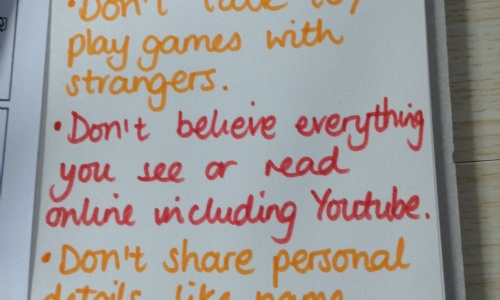 ·Don't talk to/
play games with
strangers.
·Don't believe everything
you see or read
online including Youtube.
·Don't share personal
details like name